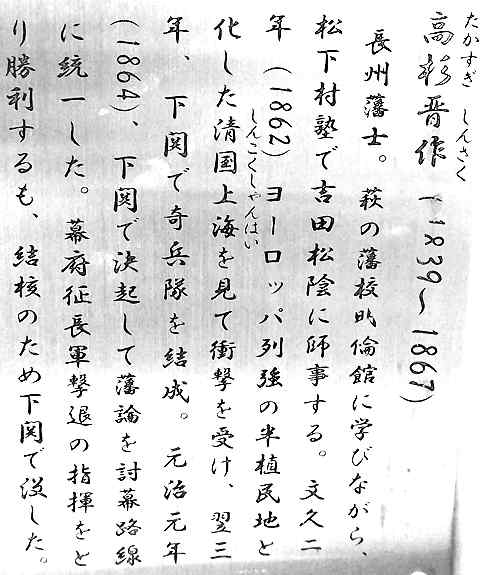 高杉晋作（1839～1867）
たかすぎ しんさく
長州藩士。萩の藩校明倫館に学びながら、
松下村塾で吉田松陰に師事する。文久二
年（1862）ヨーロッパ列強の半植民地と
化した清国上海を見て衝撃を受け、翌三
しんこくしゃんはい
年、下関で奇兵隊を結成。元治元年
（1864）、下関で決起して藩論を討幕路線
に統一した。幕府征長軍撃退の指揮をと
り勝利するも、結核のため下関で没した。